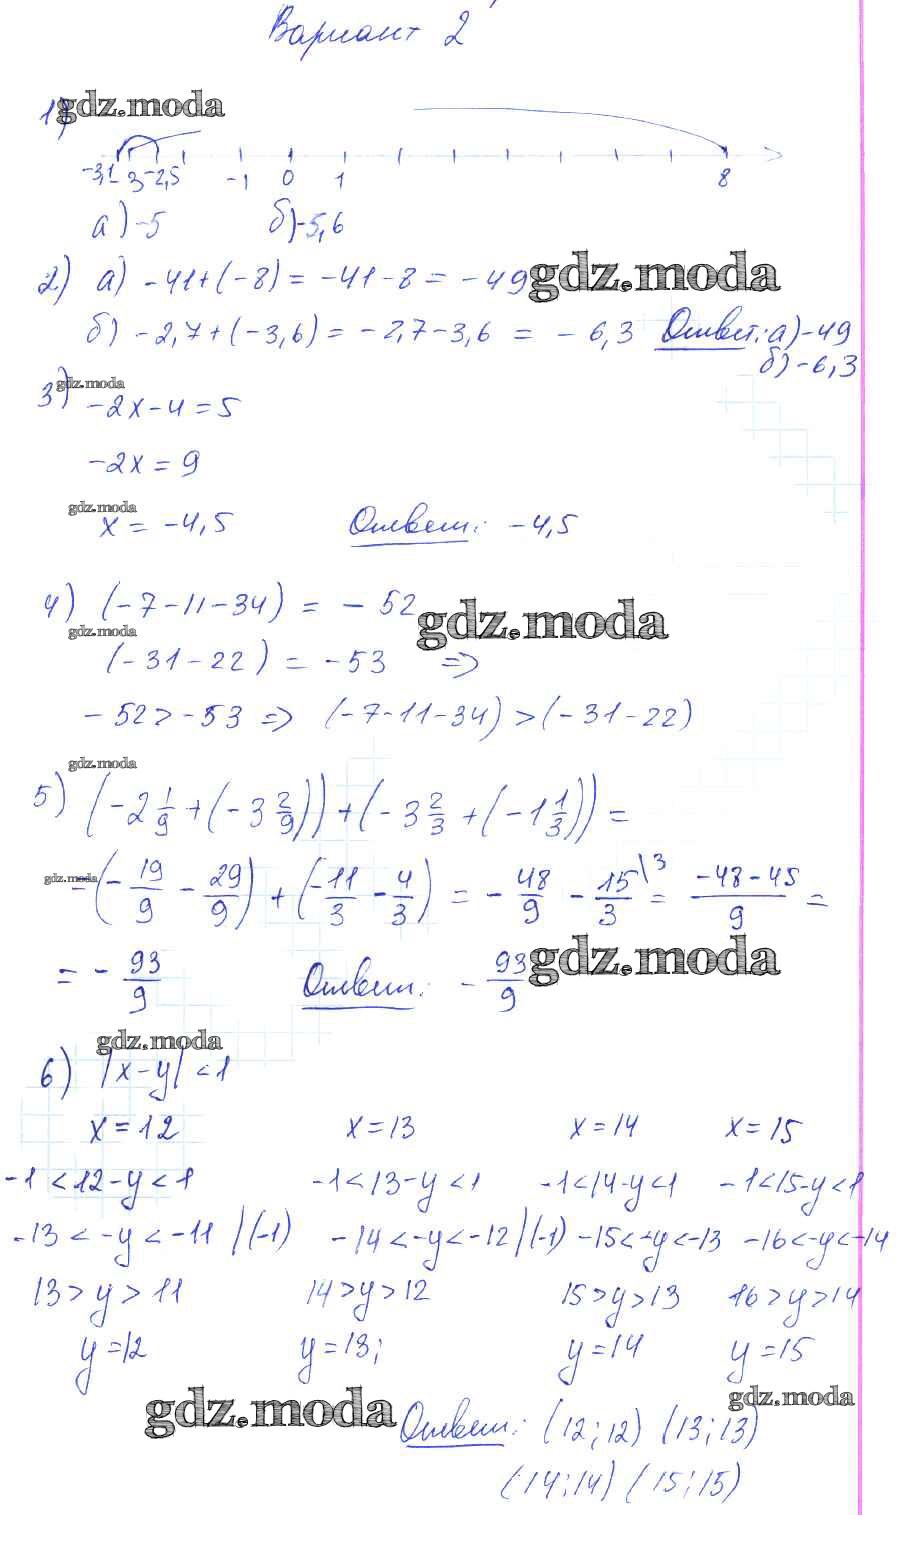 Вариант 2
1) gdz.moda
-3,1 -3 -2,5 -1 0 1 8
а) -5 б) -5,6
2) а) -41+(-8) = -41-8 = -49 gdz.moda
б) -2,7+(-3,6) = -2,7-3,6 = -6,3 Ответ: а) -49
б) -6,3
gdz.moda
3) -2x-4=5
-2x=9
gdz.moda
x = -4,5 Ответ: -4,5
4) (-7-11-34) = -52 gdz.moda
gdz.moda
(-31-22) = -53 =>
-52 > -53 => (-7-11-34) > (-31-22)
gdz.moda
5) (-2 1/9 + (-3 2/9)) + (-3 2/3 + (-1 1/3)) =
gdz.moda = (-19/9 - 29/9) + (-11/3 - 4/3) = -48/9 - 15/3 \3 = (-48-45)/9 =
= -93/9 Ответ: -93/9 gdz.moda
gdz.moda
6) |x-y| <1
x=12 x=13 x=14 x=15
-1<12-y<1 -1<13-y<1 -1<14-y<1 -1<15-y<1
-13<-y<-11 |(-1) -14<-y<-12 |(-1) -15<-y<-13 -16<-y<-14
13>y>11 14>y>12 15>y>13 16>y>14
y=12 y=13; y=14 y=15
gdz.moda gdz.moda
Ответ: (12;12) (13;13)
(14;14) (15;15)